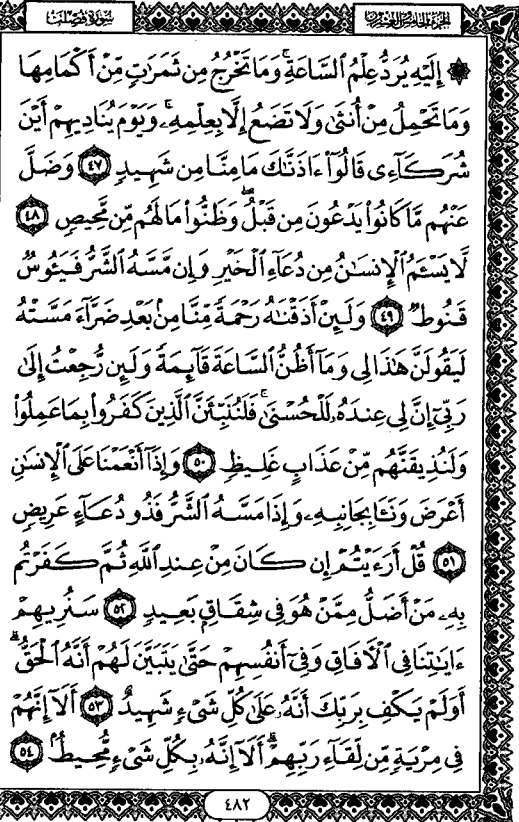 الجزء الخامس والعشرون
سورة فصلت
۞ إِلَيْهِ يُرَدُّ عِلْمُ ٱلسَّاعَةِ ۚ وَمَا تَخْرُجُ مِن ثَمَرَٰتٍ مِّنْ أَكْمَامِهَا
وَمَا تَحْمِلُ مِنْ أُنثَىٰ وَلَا تَضَعُ إِلَّا بِعِلْمِهِۦ ۚ وَيَوْمَ يُنَادِيهِمْ أَيْنَ
شُرَكَآءِى قَالُوٓا۟ ءَاذَنَّـٰكَ مَا مِنَّا مِن شَهِيدٍ ٤٧ وَضَلَّ
عَنْهُم مَّا كَانُوا۟ يَدْعُونَ مِن قَبْلُ ۖ وَظَنُّوا۟ مَا لَهُم مِّن مَّحِيصٍ ٤٨
لَّا يَسْـَٔمُ ٱلْإِنسَـٰنُ مِن دُعَآءِ ٱلْخَيْرِ وَإِن مَّسَّهُ ٱلشَّرُّ فَيَـُٔوسٌ
قَنُوطٌ ٤٩ وَلَئِنْ أَذَقْنَـٰهُ رَحْمَةً مِّنَّا مِنۢ بَعْدِ ضَرَّآءَ مَسَّتْهُ
لَيَقُولَنَّ هَـٰذَا لِى وَمَآ أَظُنُّ ٱلسَّاعَةَ قَآئِمَةً وَلَئِن رُّجِعْتُ إِلَىٰ
رَبِّىٓ إِنَّ لِى عِندَهُۥ لَلْحُسْنَىٰ ۚ فَلَنُنَبِّئَنَّ ٱلَّذِينَ كَفَرُوا۟ بِمَا عَمِلُوا۟
وَلَنُذِيقَنَّهُم مِّنْ عَذَابٍ غَلِيظٍ ٥٠ وَإِذَآ أَنْعَمْنَا عَلَى ٱلْإِنسَـٰنِ
أَعْرَضَ وَنَـَٔا بِجَانِبِهِۦ وَإِذَا مَسَّهُ ٱلشَّرُّ فَذُو دُعَآءٍ عَرِيضٍ
٥١ قُلْ أَرَءَيْتُمْ إِن كَانَ مِنْ عِندِ ٱللَّهِ ثُمَّ كَفَرْتُم
بِهِۦ مَنْ أَضَلُّ مِمَّنْ هُوَ فِى شِقَاقٍۭ بَعِيدٍ ٥٢ سَنُرِيهِمْ
ءَايَـٰتِنَا فِى ٱلْـَٔافَاقِ وَفِىٓ أَنفُسِهِمْ حَتَّىٰ يَتَبَيَّنَ لَهُمْ أَنَّهُ ٱلْحَقُّ ۗ
أَوَلَمْ يَكْفِ بِرَبِّكَ أَنَّهُۥ عَلَىٰ كُلِّ شَىْءٍ شَهِيدٌ ٥٣ أَلَآ إِنَّهُمْ
فِى مِرْيَةٍ مِّن لِّقَآءِ رَبِّهِمْ ۗ أَلَآ إِنَّهُۥ بِكُلِّ شَىْءٍ مُّحِيطٌۢ ٥٤
٤٨٢